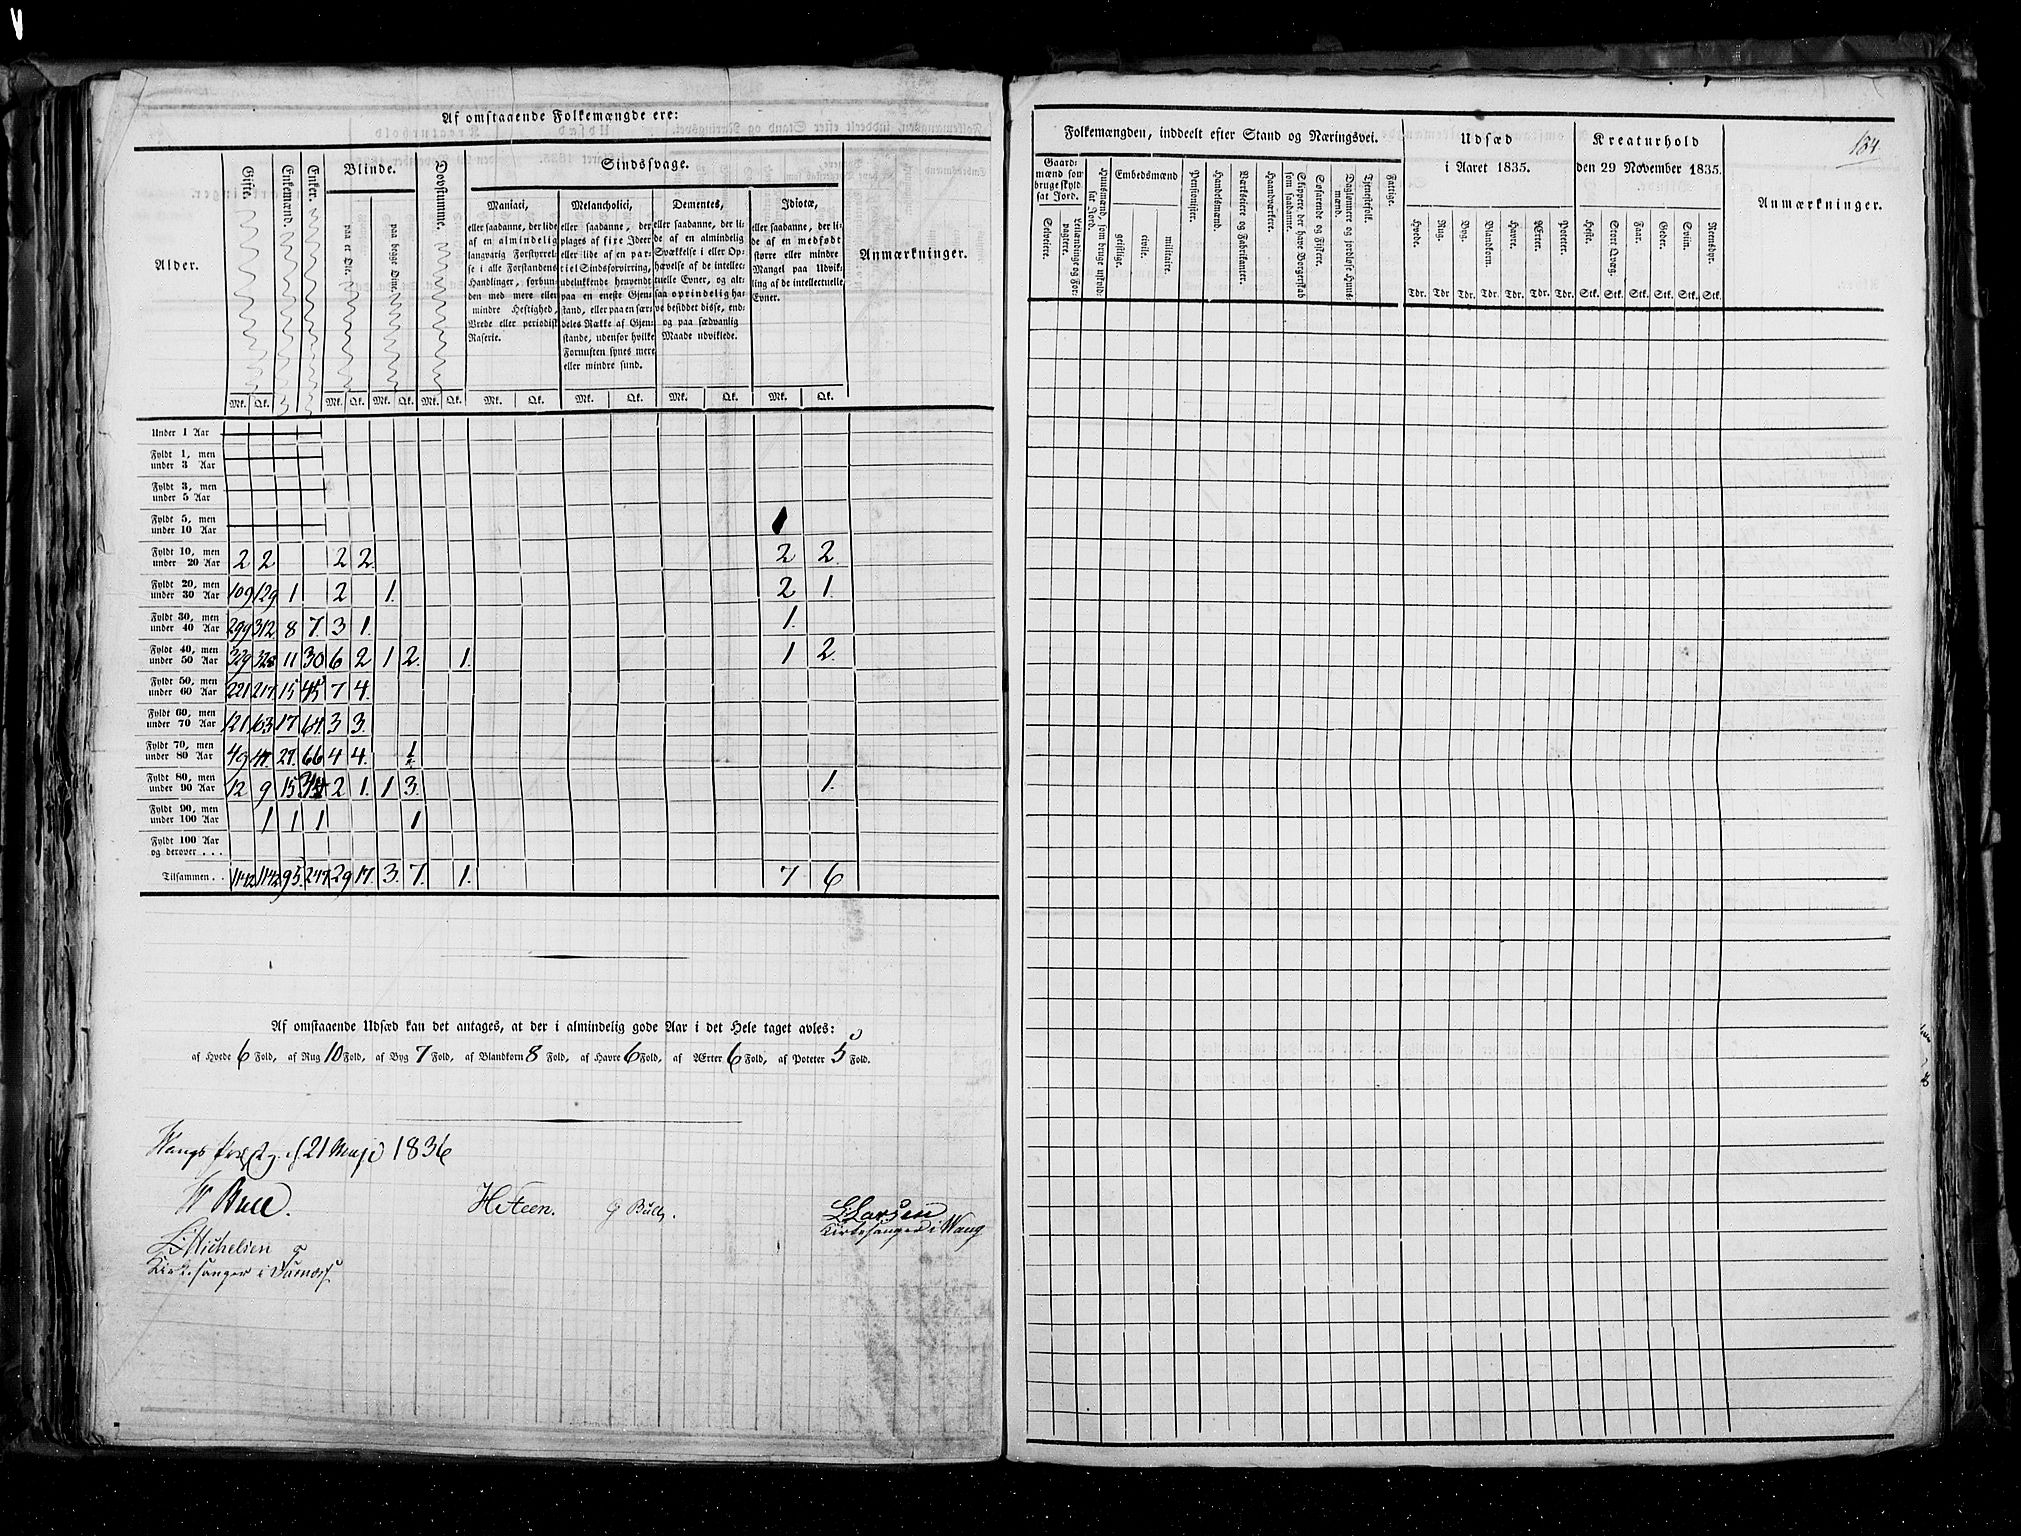 Af omstaaende Folkemængde ere:
Alder. Gifte. Enkemænd. Enker. Blinde. Døvstumme. Sindssvage. Anmærkninger.
paa et Øie. paa begge Øine.
Maniaci,
eller saadanne, der lide
af en almindelig
langvarig Forstyrrel-
se i alle Forstandens
Handlinger, forbun-
den med mere eller
mindre Heftighed,
Vrede eller periodisk
Raserie.
Melancholici,
eller saadanne, der
plages af fixe Ideer
eller lide af en par-
tiel Sindsforvirring,
udelukkende henvendt
paa en eneste Gjen-
stand, eller paa en sær-
deles Række af Gjen-
stande, udenfor hvilke
Fornuften synes mere
eller mindre sund.
Dementes,
eller saadanne, der li-
de af en almindelig
Svækkelse i eller Op-
hævelse af de intellec-
tuelle Evner, og alt-
saa oprindelig ha-
ve besiddet disse, end-
og paa sædvanlig
Maade udviklede.
Idiotæ,
eller saadanne, der li-
de af en medfødt
større eller mindre
Mangel paa Udvik-
ling af de intellectuelle
Evner.
Mk. Qk. Mk. Qk. Mk. Qk. Mk. Qk. Mk. Qk. Mk. Qk. Mk. Qk. Mk. Qk.
Under 1 Aar
Fyldt 1, men
under 3 Aar
Fyldt 3, men
under 5 Aar
Fyldt 5, men
under 10 Aar 1
Fyldt 10, men
under 20 Aar 2 2 2 2 2 2
Fyldt 20, men
under 30 Aar 109 129 1 2 1. 2 1.
Fyldt 30, men
under 40 Aar 299 312 8 7. 3 1. 1.
Fyldt 40, men
under 50 Aar 329 328 11 30 6 2 1 2. 1. 1 2.
Fyldt 50, men
under 60 Aar 221 217. 15 45 7 4.
Fyldt 60, men
under 70 Aar 121 63 17 64. 3 3.
Fyldt 70, men
under 80 Aar 49 27. 66 4 4. 1
Fyldt 80, men
under 90 Aar 12 9 15 2 1. 1 3. 1.
Fyldt 90, men
under 100 Aar 1 1 1 1
Fyldt 100 Aar
og derover . . .
Tilsammen . . 1142 1142 95. 247. 29 17. 3. 7. 1. 7 6
Af omstaaende Udsæd kan det antages, at der i almindelig gode Aar i det Hele taget avles:
af Hvede 6 Fold, af Rug 10 Fold, af Byg 7 Fold, af Blandkorn 8 Fold, af Havre 6 Fold, af Ærter 6 Fold, af Poteter 5 Fold.
21 1836
Bull.
H. Steen. G Bull.
L. Larsen
Kirkesanger i Wang
L. Michelsen
Kirkesanger i
164
Folkemængden, inddeelt efter Stand og Næringsvei.
Gaard-
mænd som
bruge skyld-
sat Jord.
Selveiere.
Leilændinge og For-
pagtere.
Huusmænd, som bruge uskyld-
sat Jord.
Embedsmænd
geistlige. civile. militaire.
Pensionister.
Handelsmænd.
Værkeiere og Fabrikanter.
Haandværkere.
Skippere, der have Borgerskab
som saadanne.
Søfarende og Fiskere.
Daglønnere og jordløse Huus-
mænd.
Tjenestefolk.
Fattige.
Udsæd
i Aaret 1835.
Hvede. Rug. Byg. Blandkorn. Havre. Ærter. Poteter.
Tdr. Tdr. Tdr. Tdr. Tdr. Tdr. Tdr.
Kreaturhold
den 29 November 1835.
Heste. Stort Qvæg. Faar. Geder. Sviin. Reensdyr.
Stk. Stk. Stk. Stk. Stk. Stk.
Anmærkninger.